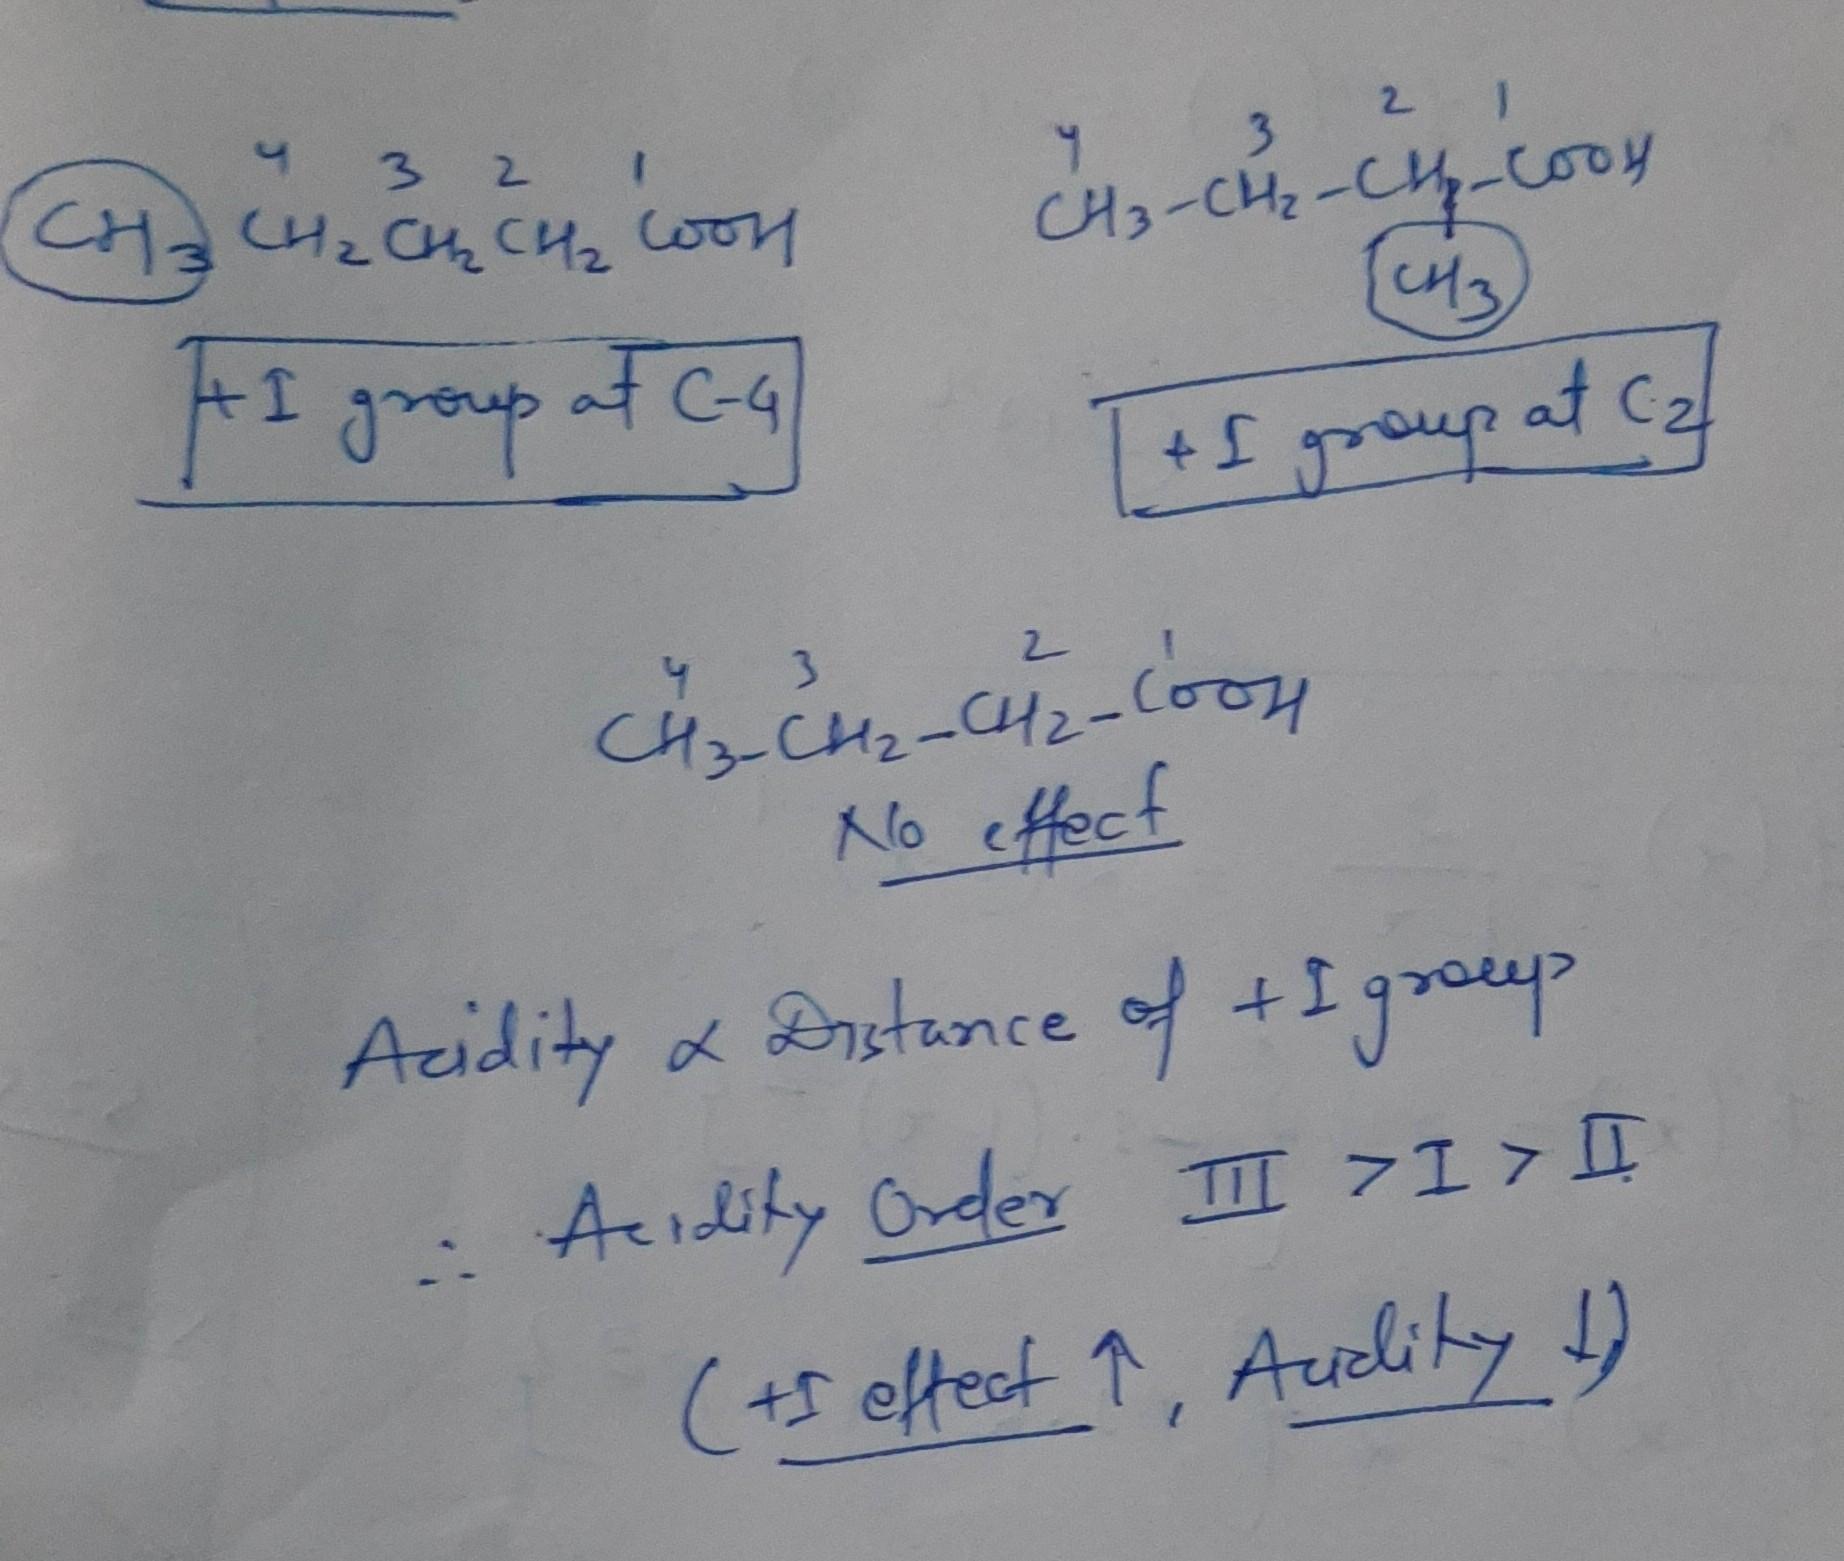 4 3 2 1
CH3 CH2 CH2 CH2 COOH
+I group at C-4
4 3 2 1
CH3-CH2-CH-COOH
CH3
+I group at C-2
4 3 2 1
CH3-CH2-CH2-COOH
No effect
Acidity α Distance of +I group
∴ Acidity Order III > I > II
(+I effect ↑, Acidity ↓)